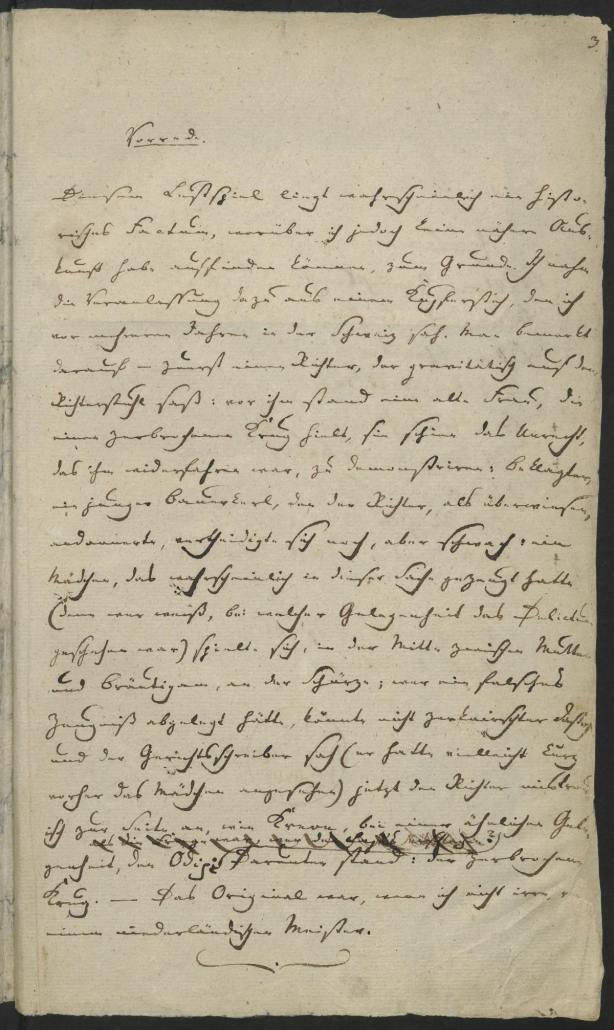 3.
Vorrede.
Diesem Lustspiel liegt wahrscheinlich ein histo-
risches Factum, worüber ich jedoch keine nähere Aus-
kunft habe auffinden können, zum Grunde. Ich nahm
die Veranlassung dazu aus einem Kupferstich, den ich
vor mehreren Jahren in der Schweiz sah. Man bemerkte
darauf – zuerst einen Richter, der gravitätisch auf dem
Richterstuhl saß: vor ihm stand eine alte Frau, die
einen zerbrochenen Krug hielt, sie schien das Unrecht,
das ihm widerfahren war, zu demonstriren: Beklagter,
ein junger Bauerkerl, den der Richter, als überwiesen,
andonnerte, vertheidigte sich noch, aber schwach: ein
Mädchen, das wahrscheinlich in dieser Sache gezeugt hatte
(denn wer weiß, bei welcher Gelegenheit das Delictum
geschehen war) spielte sich, in der Mitte zwischen Mutter
und Bräutigam, an der Schürze; wer ein falsches
Zeugniß abgelegt hätte, könnte nicht zerknirschter dastehn:
und der Gerichtsschreiber sah (er hatte vielleicht kurz
vorher das Mädchen angesehen) jetzt den Richter mistraui-
sch zur Seite an, wie Kreon, bei einer ähnlichen Gele-
genheit, den Ödip. Darunter stand: der zerbrochene
Krug. – Das Original war, wenn ich nicht irre, von
einem niederländischen Meister.